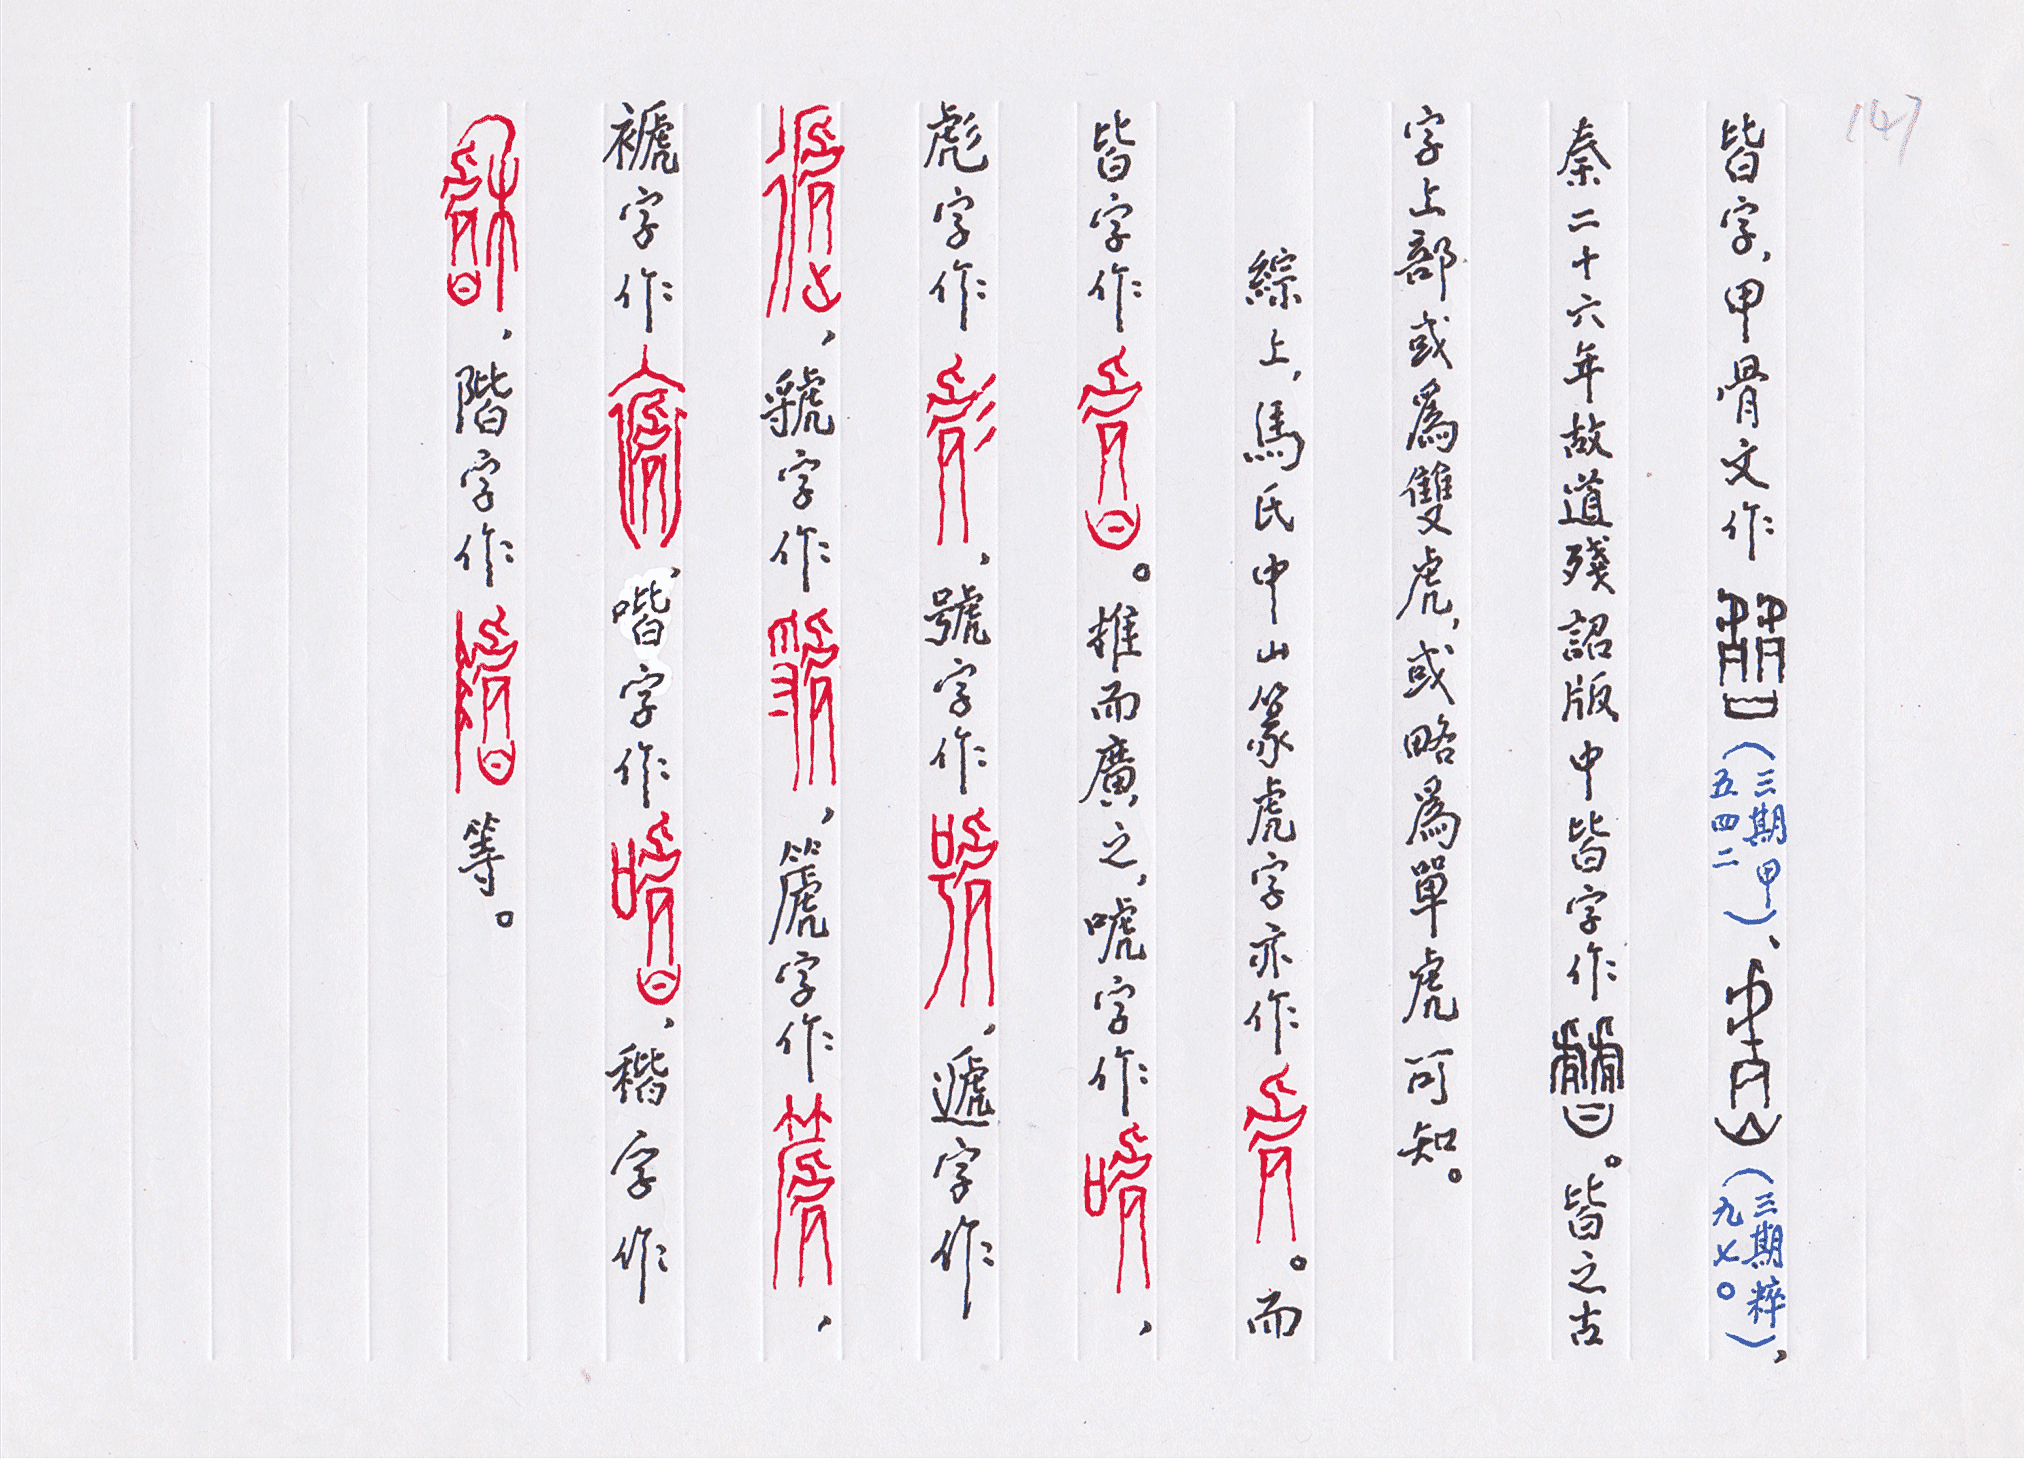 147
皆字，甲骨文作（三期甲五四二）、（三期粹九七〇），
秦二十六年故道殘詔版中皆字作。皆之古
字上部或爲雙虎，或略爲單虎可知。
綜上，馬氏中山篆虎字亦作。而
皆字作。推而廣之，唬字作，
彪字作，號字作，遞字作
，虢字作，箎字作，
褫字作，喈字作，稭字作
，階字作等。